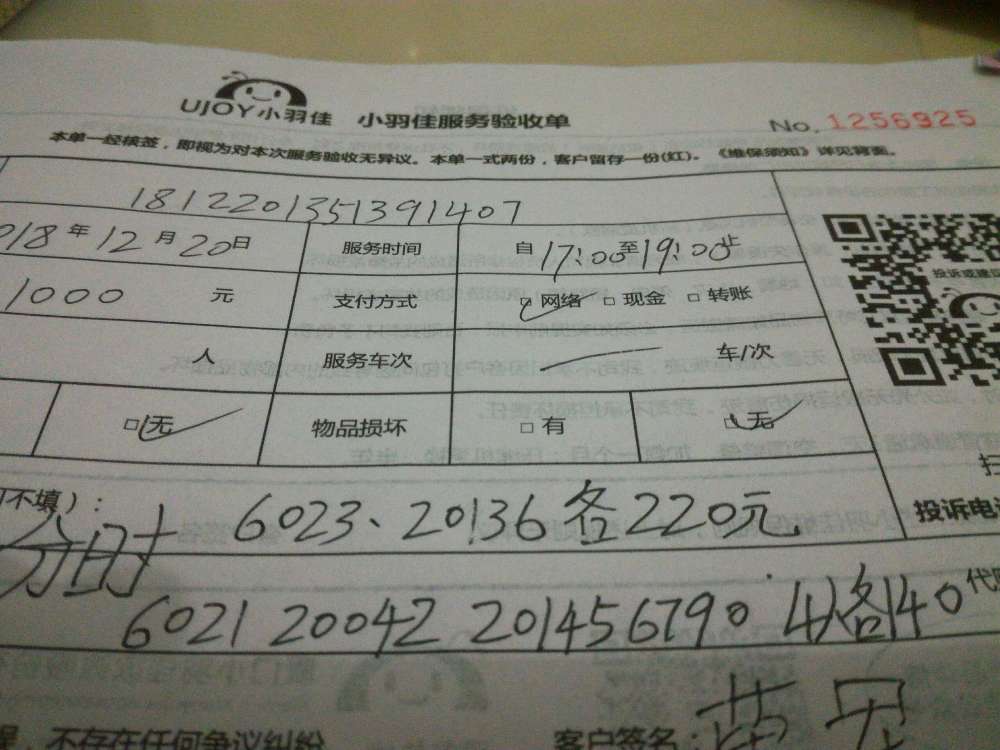 UJOY小羽佳 小羽佳服务验收单 No. 1256925
本单一经核签，即视为对本次服务验收无异议。本单一式两份，客户留存一份(红)。《维保须知》详见背面。
1812201351391407
018年12月20日 服务时间 自17:00至19:00止
1000 元 支付方式 □网络 □现金 □转账
人 服务车次 车/次
□无 物品损坏 □有 □无
不填）： 6023、20136各220元 投诉电
分时
6021 20042 201456790 各140
不存在任何争议纠纷 客户签名：